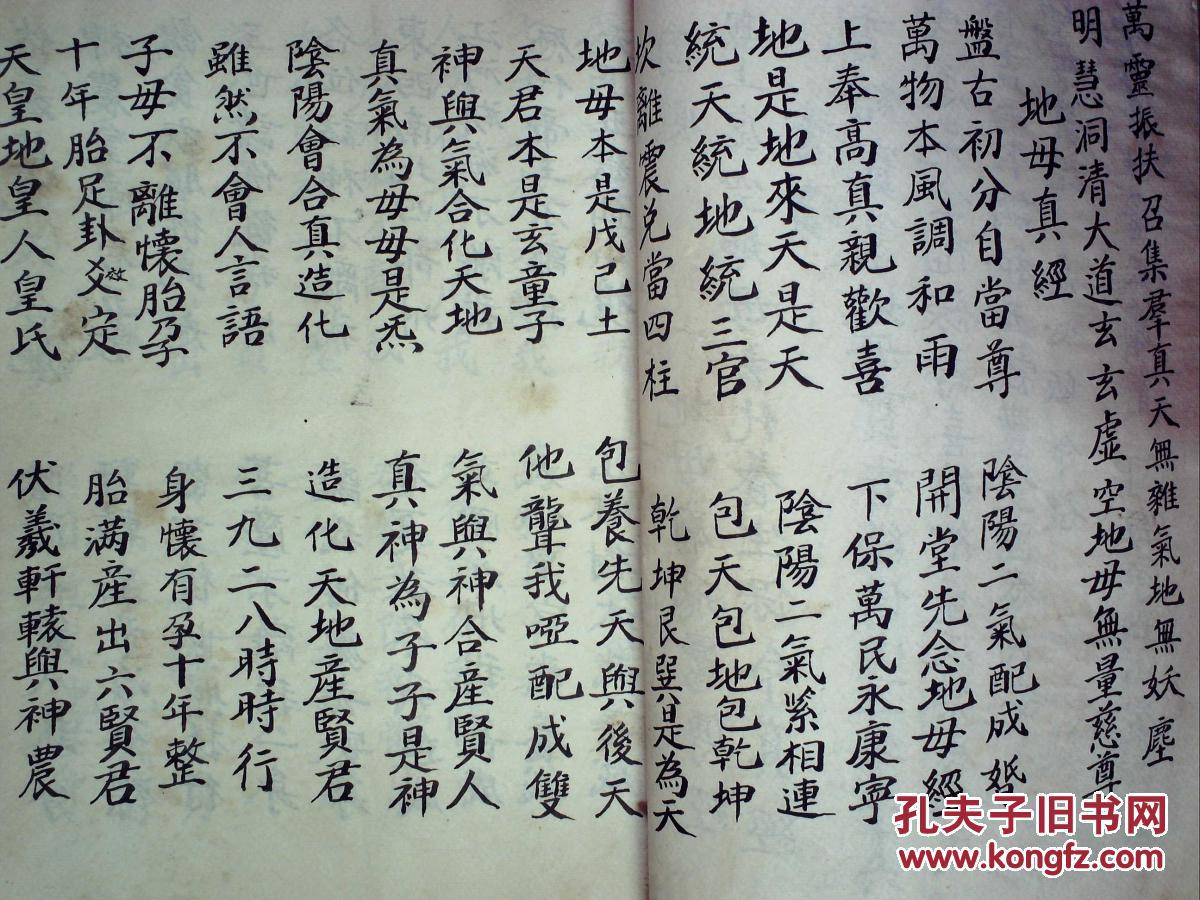 萬靈振扶召集羣真天無雜氣地無妖塵
明慧洞清大道玄玄虛空地母無量慈尊
地母真經
盤古初分自當尊 陰陽二氣配成婚
萬物本風調和雨 開堂先念地母經
上奉高真親歡喜 下保萬民永康寧
地是地來天是天 陰陽二氣紧相連
統天統地統三官 包天包地包乾坤
坎離震兑當四柱 乾坤艮巽是為天
地母本是戊己土 包養先天與後天
天君本是玄童子 他聾我啞配成雙
神與氣合化天地 氣與神合産賢人
真氣為母母是炁 真神為子子是神
陰陽會合真造化 造化天地産賢君
雖然不會人言語 三九二八時時行
子母不離懷胎孕 身懷有孕十年整
十年胎足卦爻效定 胎满産出六賢君
天皇地皇人皇氏 伏羲軒轅與神農
孔夫子旧书网
www.kongfz.com